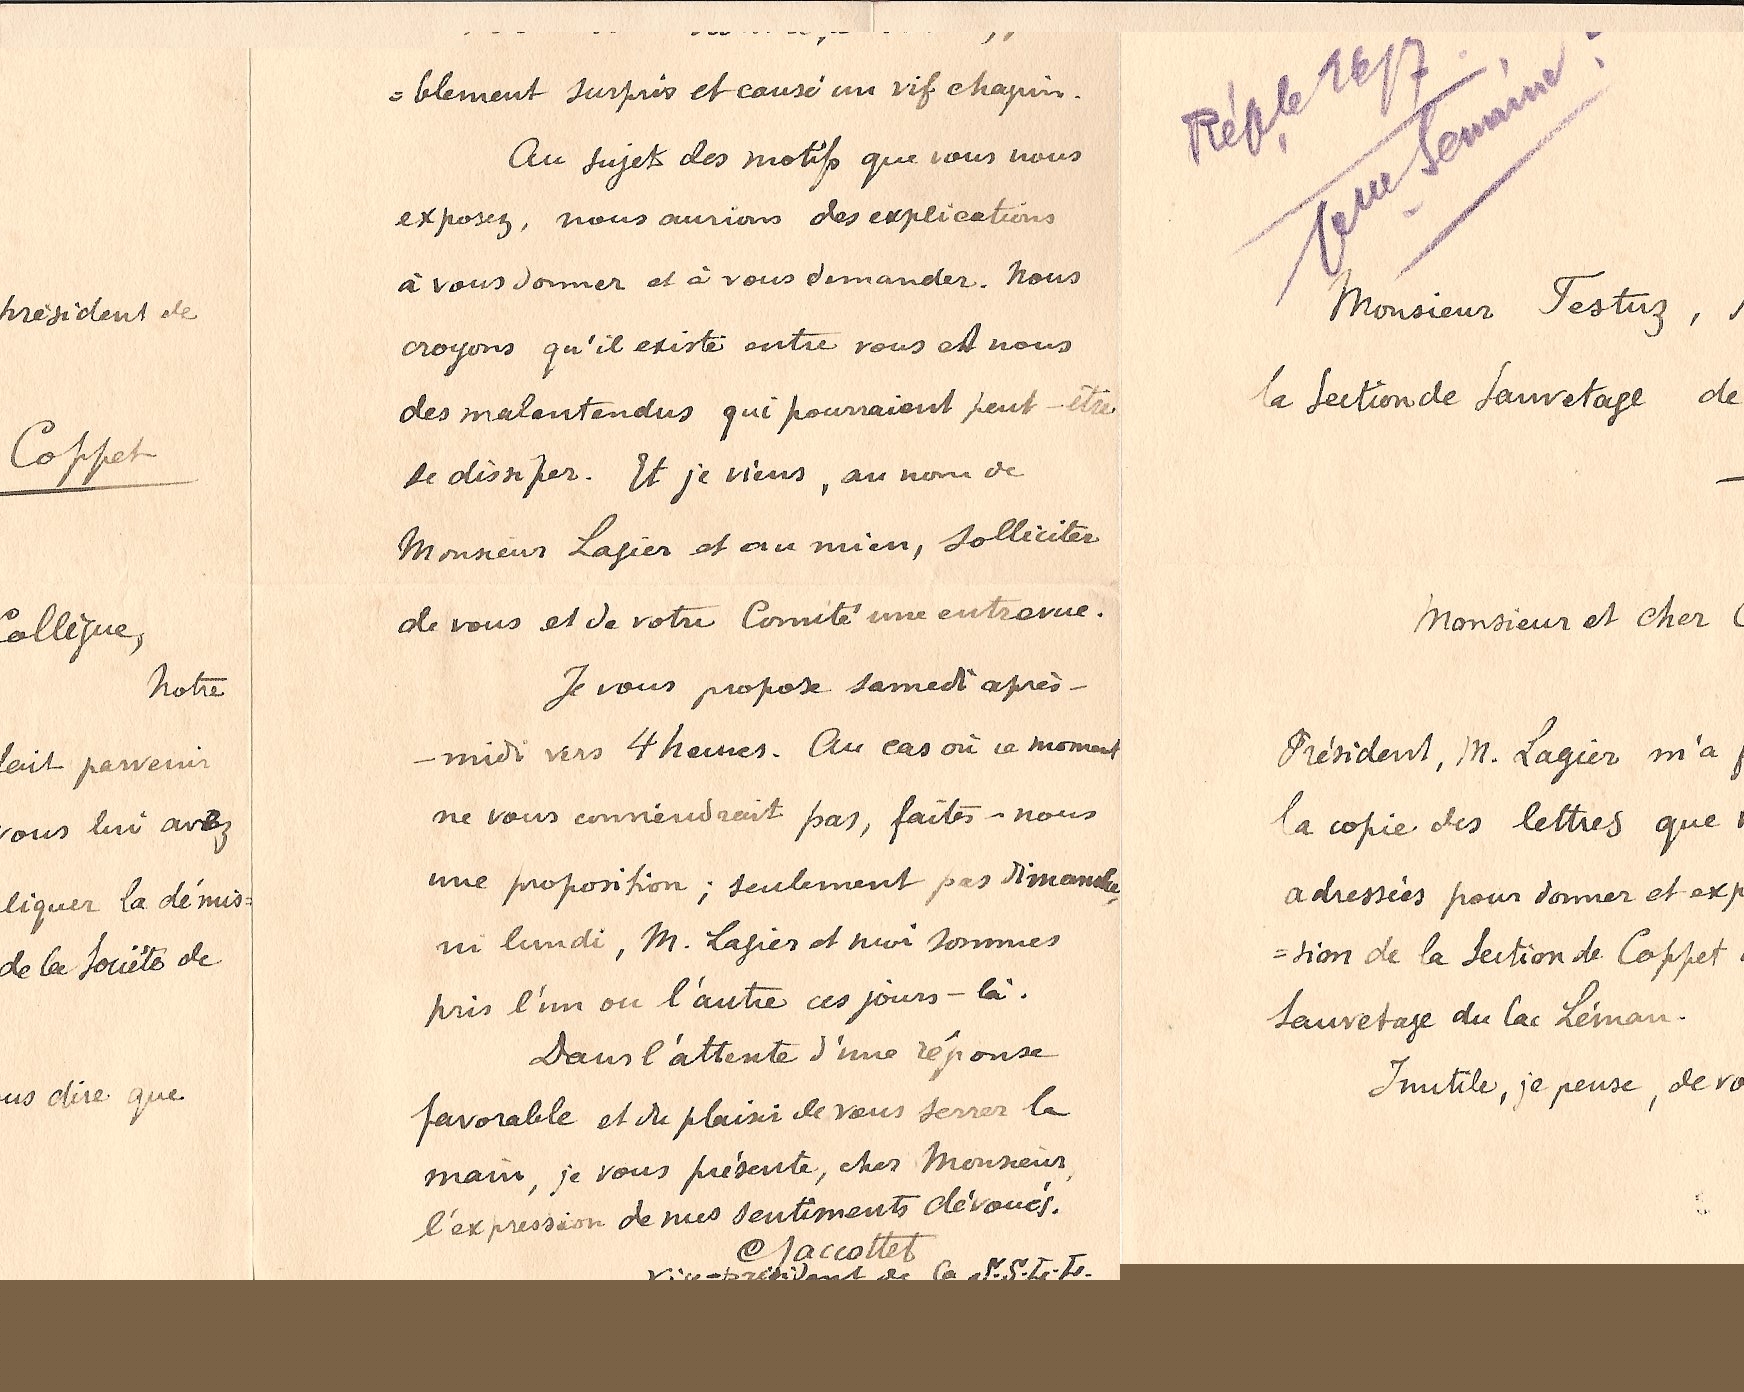 président de
Coppet
Collègue,
Notre
fait parvenir
vous lui avez
liquer la démis=
de la Société de
ous dire que
=blement surpris et causé un vif chagrin.
Au sujet des motifs que vous nous
exposez, nous aurions des explications
à vous donner et à vous demander. Nous
croyons qu'il existe entre vous et nous
des malentendus qui pourraient peut-être
se dissiper. Et je viens, au nom de
Monsieur Lagier et au mien, solliciter
de vous et de votre Comité une entrevue.
Je vous propose samedi après-
-midi vers 4 heures. Au cas où ce moment
ne vous conviendrait pas, faites-nous
une proposition; seulement pas dimanche,
ni lundi, M. Lagier et moi sommes
pris l'un ou l'autre ces jours-là.
Dans l'attente d'une réponse
favorable et du plaisir de vous serrer la
main, je vous présente, cher Monsieur,
l'expression de mes sentiments dévoués.
Jaccottet
Vice-président de la
Monsieur Testuz,
la Section de Sauvetage de
Monsieur et cher C
Président, M. Lagier m'a f
la copie des lettres que v
adressées pour donner et exp
=sion de la Section de Coppet
Sauvetage du lac Léman.
Inutile, je pense, de vo